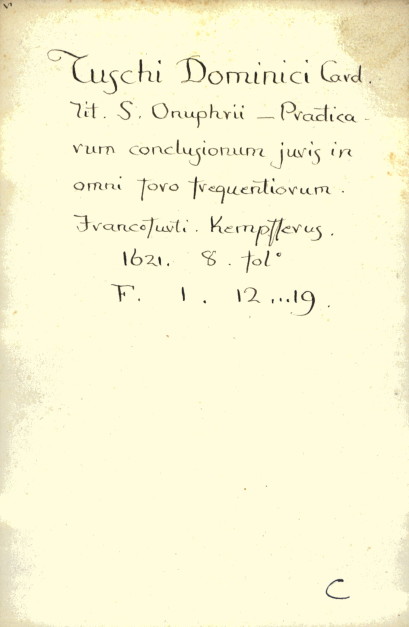 Tuschi Dominici Card.
Tit. S. Onuphrii — Practica-
rum conclusionum juris in
omni foro frequentiorum.
Francofurti. Kempfferus.
1621. 8. fol°
F. 1. 12...19.
C